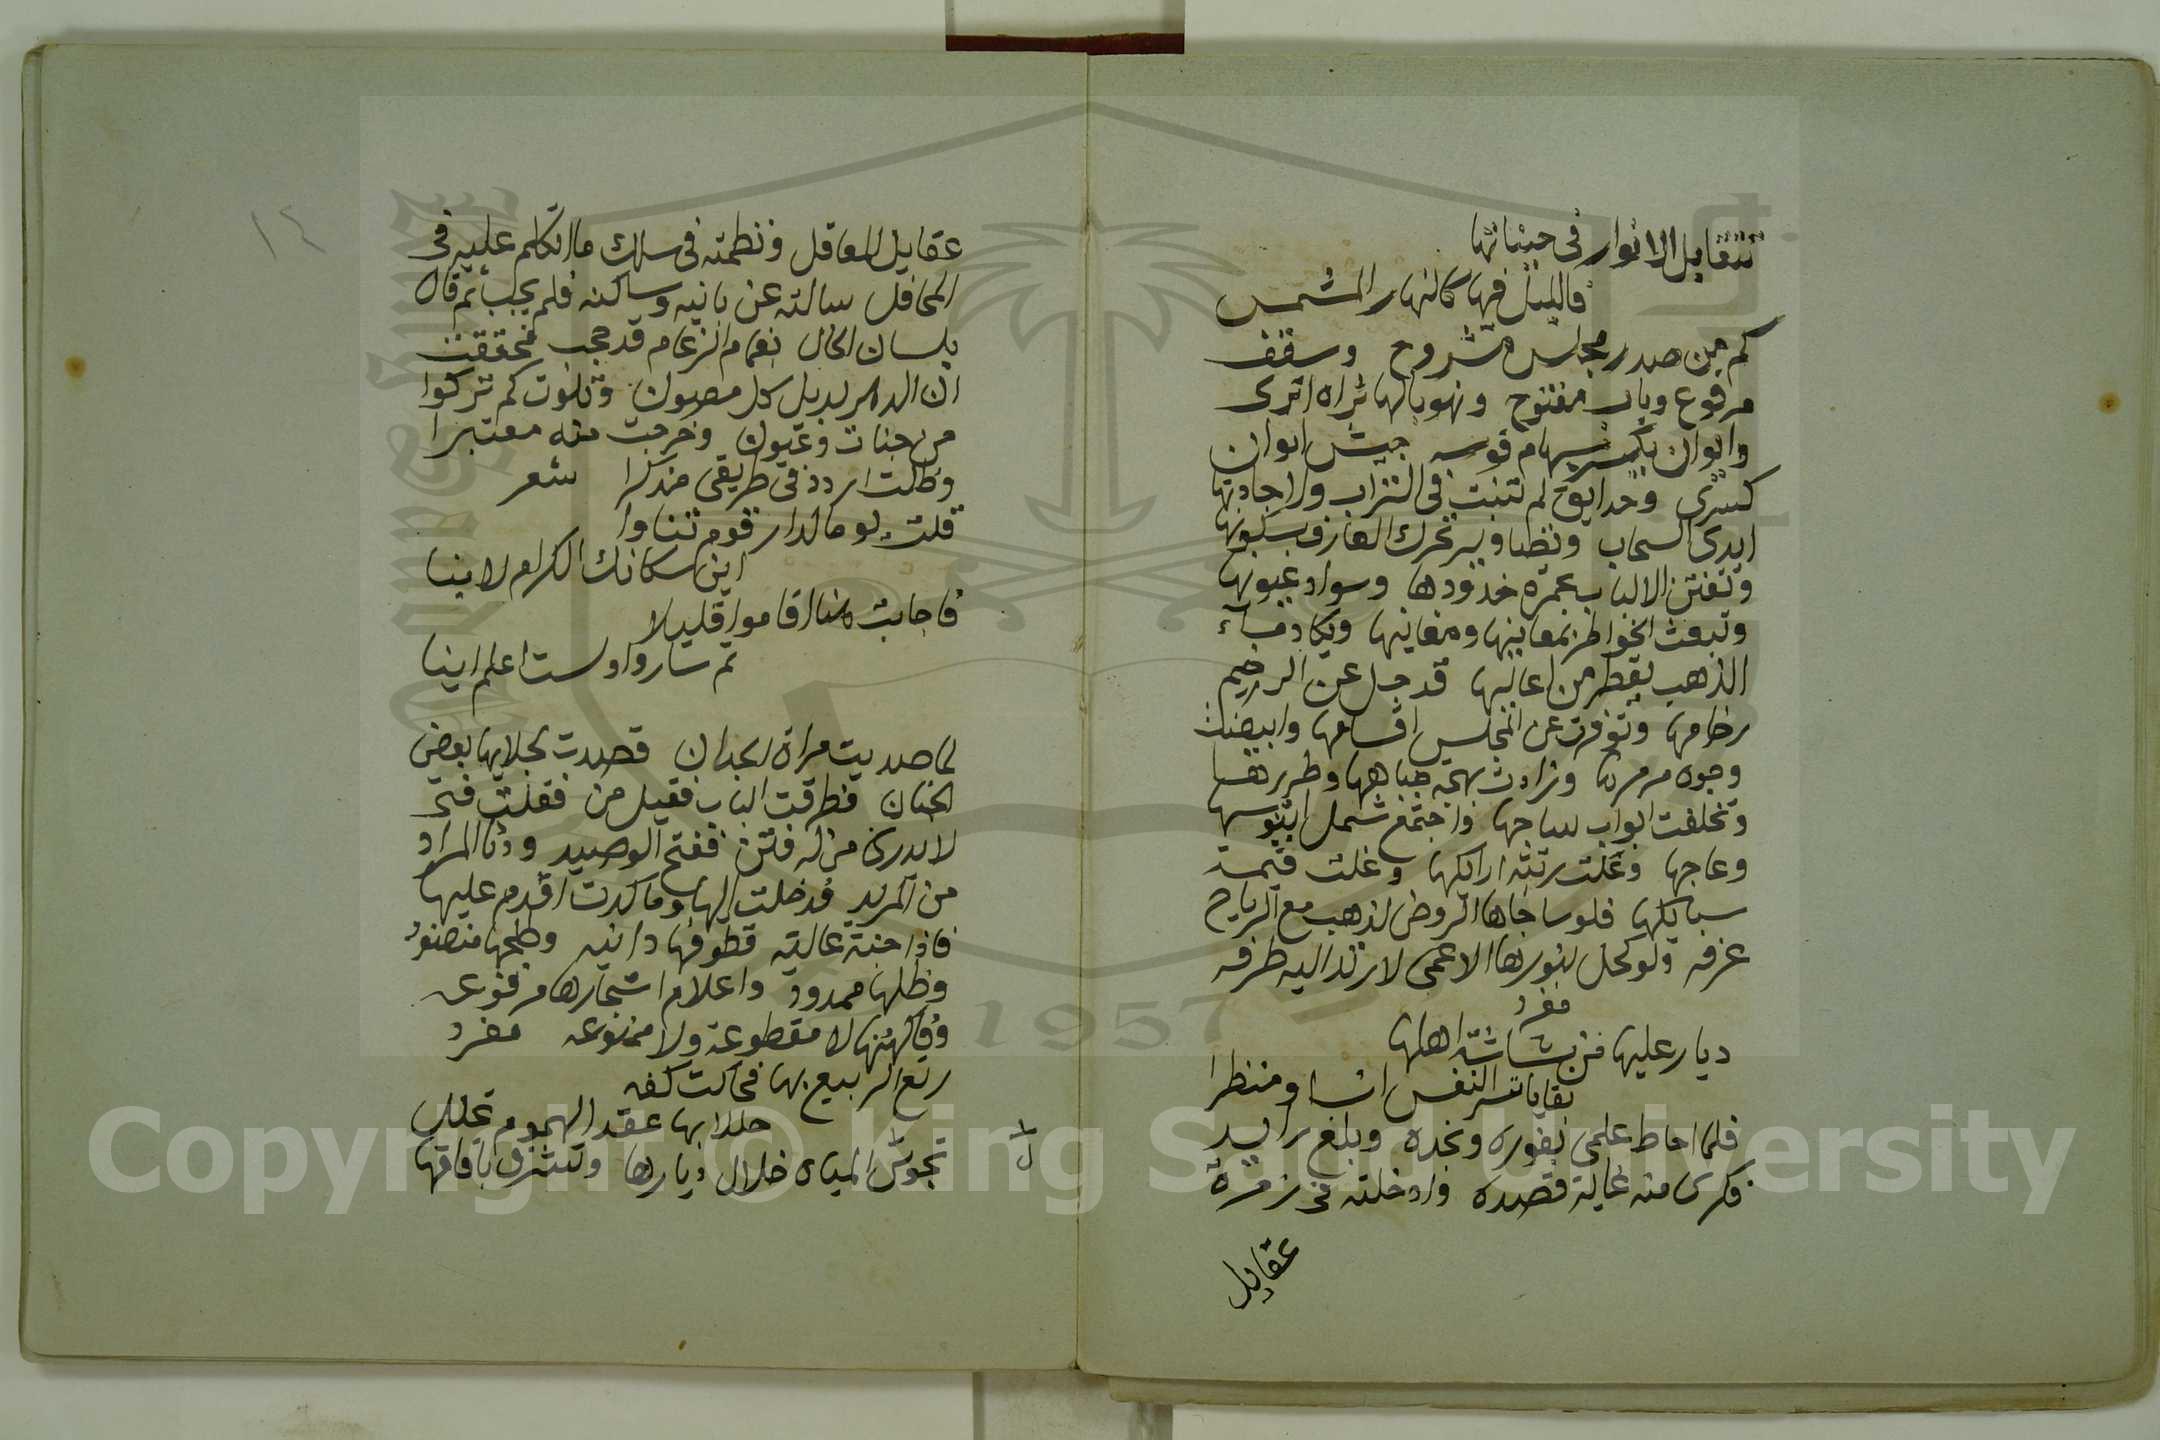 تتقابل الانوار في جنباتها
فالليل فيها كالنهار المشمس
كم من صدر مجلس مشروح وسقف
مرفوع وباب مفتوح وبهو بالها ثراه اثرى
وايوان بكسر سهام قوسه جيش ايوان
كسرى وحدايق لم تنبت في التراب ولا جادتها
ايدي السحاب وظباء يسر تحرك العازف بسكونها
وتفتن الالباب بحمرة خدودها وسواد عيونها
وتبعث الخواطر بمعانيها ومغانيها ويكاد ماء
الذهب يقطر من اعاليها قد جل عن الرخيم
رخامها وتوفرت عن المجلس اقسامها وابيضت
وجوه مرمرها وزادت بهجة جباهها وطررها
وتخلفت ابواب ساجها واجتمع شمل ابنوسها
وعاجها وعلت رتبة ارائكها وغلت قيمة
سبائكها فلو ساجاها الروض لذهب مع الرياح
عرفه ولو كحل بنورها الاعمى لارتد اليه طرفه
مفرد
ديار عليها من بشاشة اهلها
بقايا تسر النفس انسا ومنظرا
فلما احاط علمي بغوره ونجده وبلغ رايد
فكري منه غاية قصده وادخلته في زمرة
عقايل
١٤
عقايل المعاقل ونظمته في سلك ما اتكلم عليه في
المحافل سالته عن بانيه وساكنه فلم يجب ثم قال
بلسان الحال بغمام الرغام قد حجب فتحققت
ان الدهر يديل كل مصون وتلوت كم تركوا
من جنات وعيون وخرجت منه معتبرا
وظلت اردد في طريقي منذكرا شعر
قلت يوما لدار قوم تفانوا
اين سكانك الكرام لدينا
فاجابت هنا اقاموا قليلا
ثم ساروا ولست اعلم اينا
لما صديت مراة الجنان قصدت لجلايها بعض
الجنان فطرقت الباب فقيل من فقلت فتى
لا يدرى منزله فتن ففتح الوصيد ودنا المراد
من المريد فدخلت اليها وما كدت اقدم عليها
فاذا جنة عالية قطوفها دانيه وطلحها منضود
وظلها ممدود واعلام اشجارها مرفوعه
وفاكهتها لا مقطوعة ولا ممنوعه مفرد
ربع الربيع بها فحاكت كفه
حللا بها عقد الهموم تحلل
تجوس المياه خلال ديارها وتشرق بافاقها